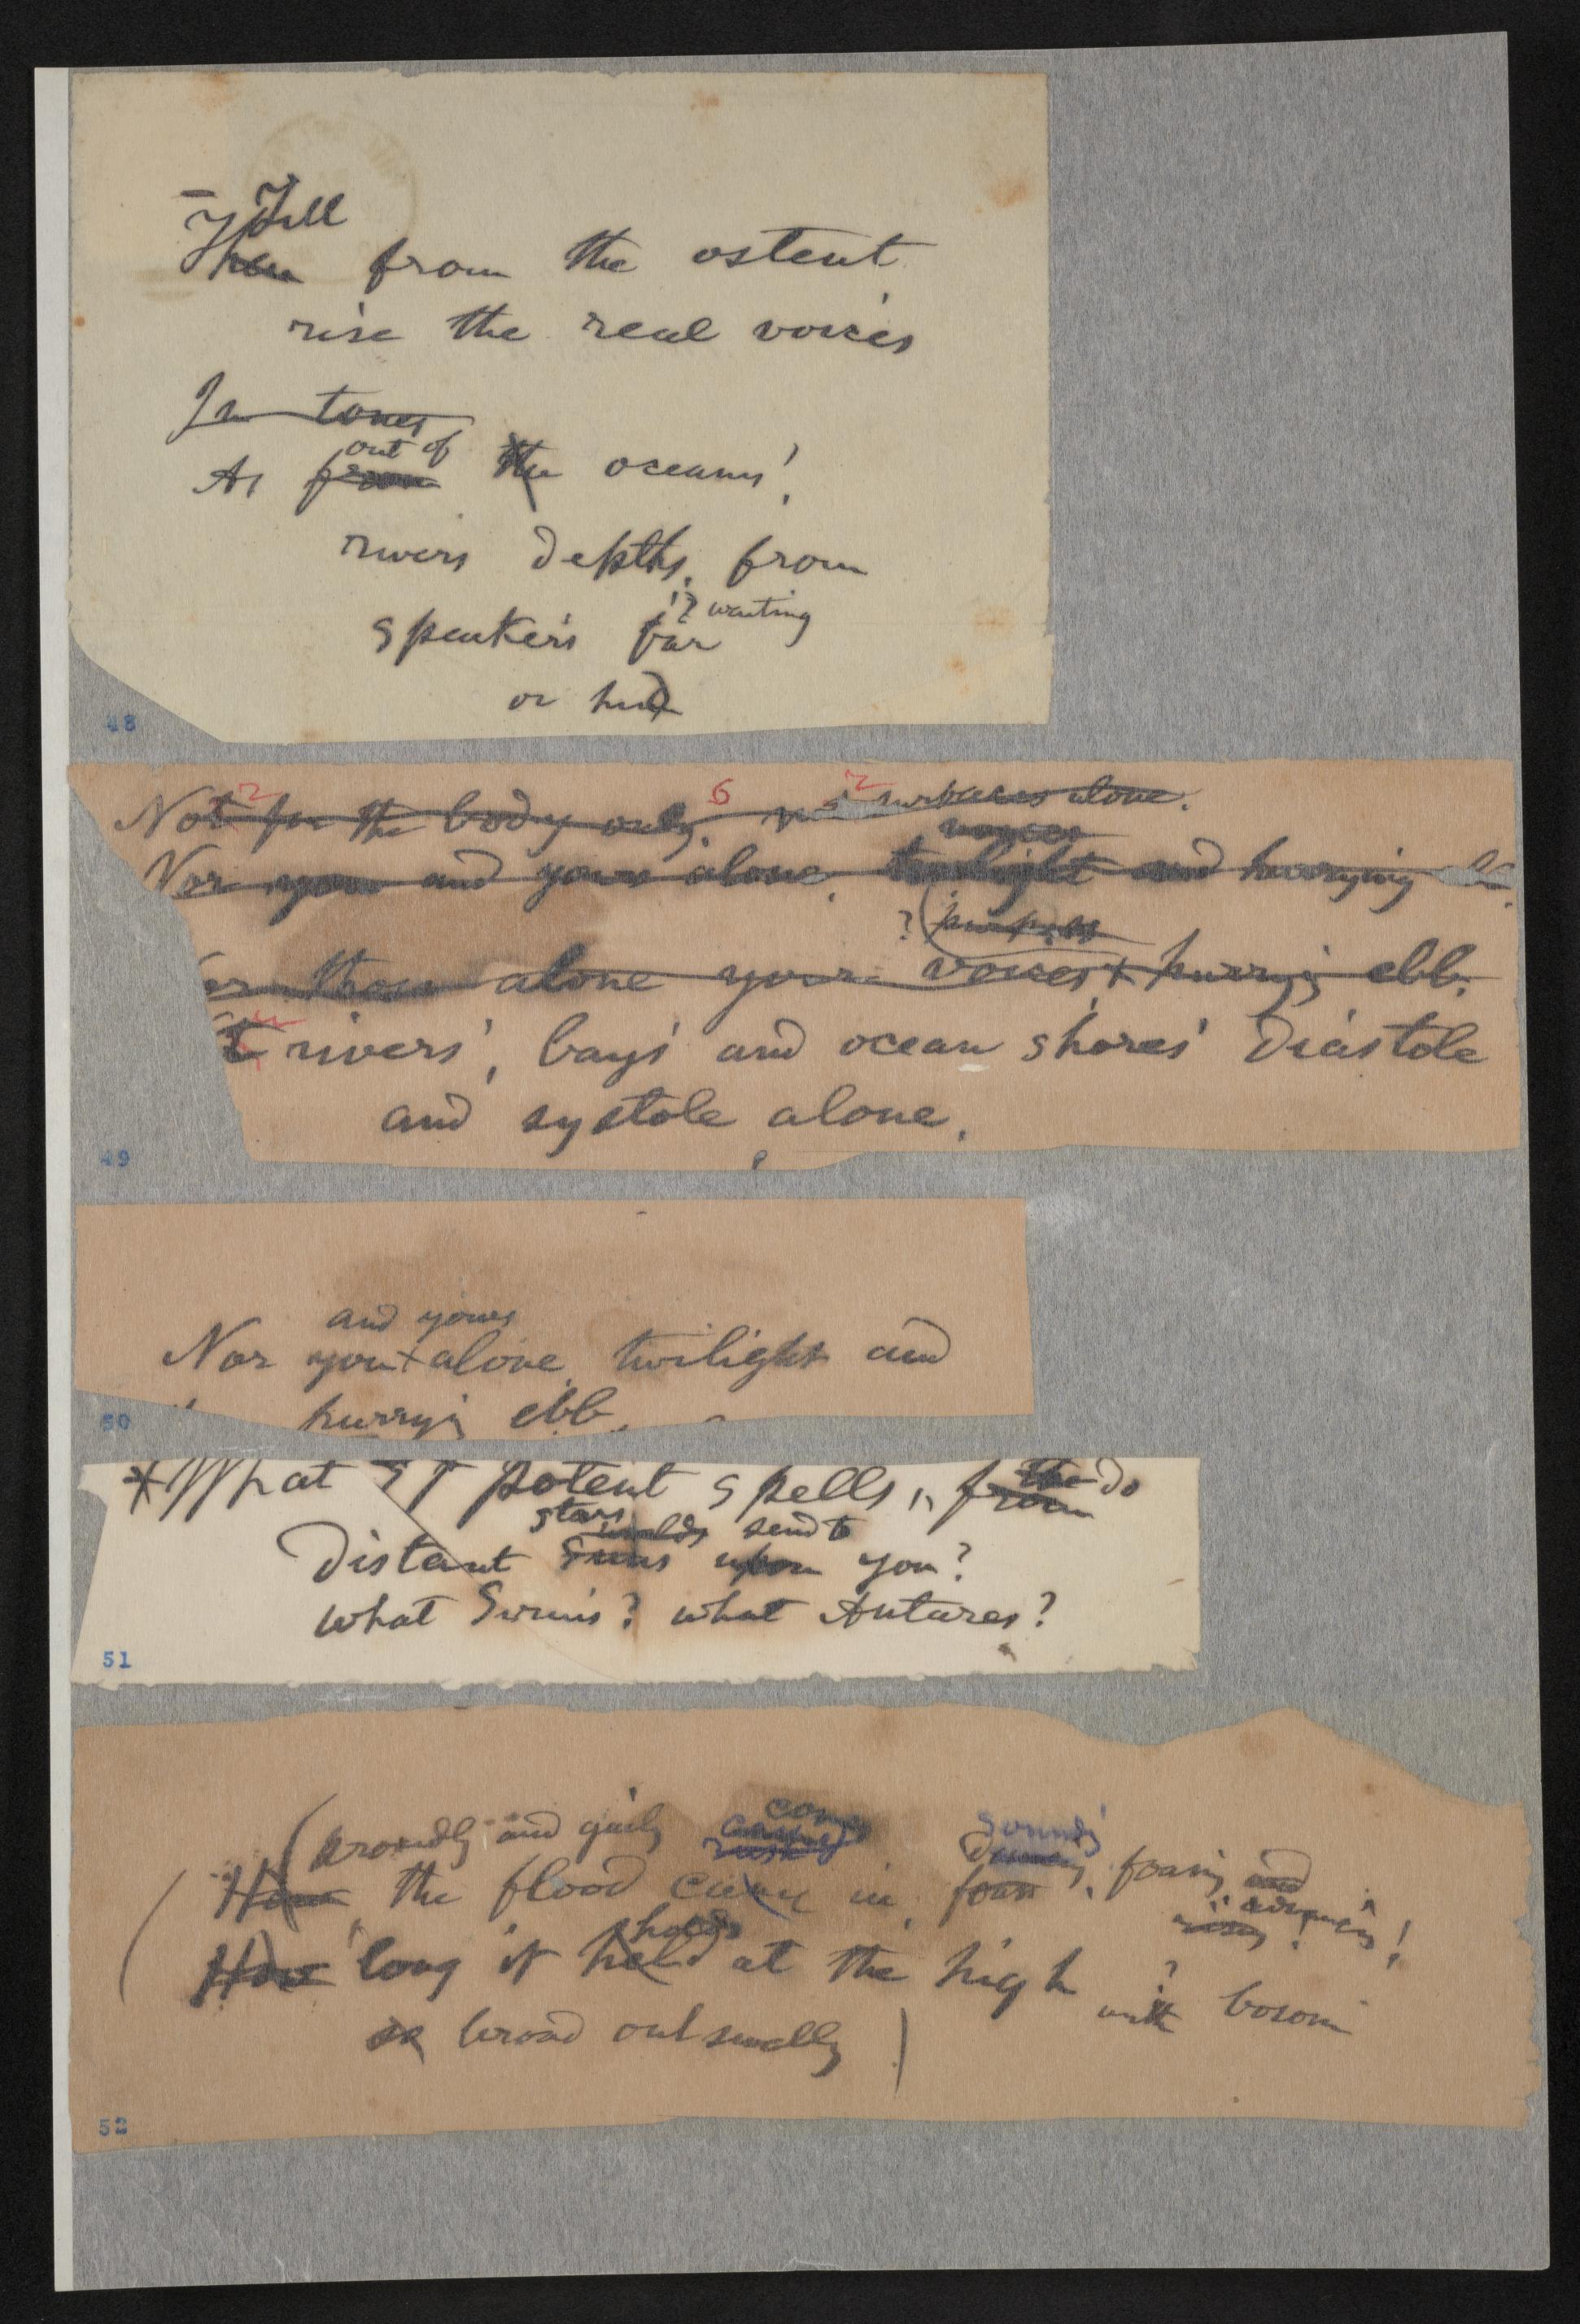 Till
Then from the ostent
rise the real voices
In tones
out of
As from the oceans'
rivers depths, from
? waiting
speakers far
or hid
48
2 6 2
Not for the body only, surfaces alone.
voices
Nor you and yours alone, twilight and hurrying
? (purposes
them alone your voices, + hurryg ebb.
rivers', bays' and ocean shores' diastole
and systole alone.
49
and yours
Nor you + alone, twilight and
hurryg ebb.
50
the do
*What potent spells, from
stars worlds send to
Distant Suns upon you?
what Sirius? what Antares?
51
come
(proudly and gaily sounds
rush
How the flood came in, foam, foaming and
rising advancing!
holds
How long it held at the high with ? bosom
broad outswelly)
52